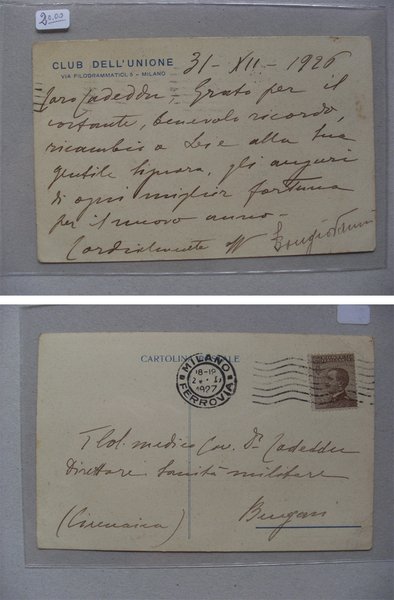 20.00
CLUB DELL'UNIONE
VIA FILODRAMMATICI, 5 - MILANO
31 - XII - 1926
Caro Cadeddu, Grato per il
costante, benevolo ricordo,
ricambio a Lei e alla Sua
gentile Signora, gli auguri
di ogni miglior fortuna
per il nuovo anno -
Cordialmente
CARTOLINA POSTALE
MILANO
18-19
1927
FERROVIA
Cav. Dr Cadeddu
Direttore Sanità militare
Bengasi
(Cirenaica)